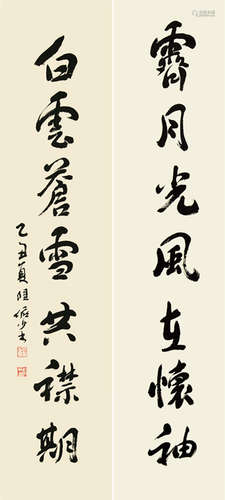 霽月光風在懷袖
白雲蒼雪共襟期
乙丑夏陸儼少書